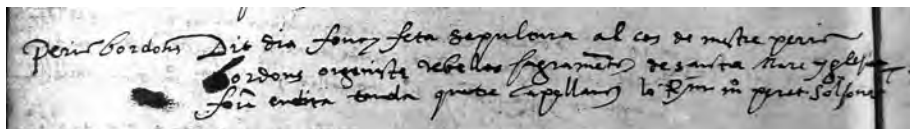 perris bordons Dit dia fonch feta sepultura al cos de mestre perris
bordons organista rebe los sagraments de sancta mare yglesia
foren en dita tomba quatre capellans lo Rnt mº peret Solsona